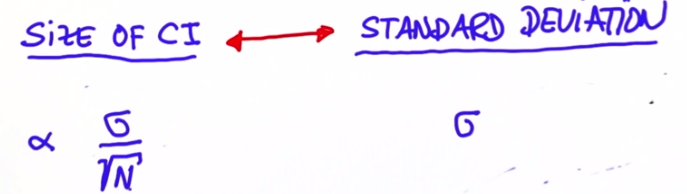 SiZE OF CI ↔ STANDARD DEVIATION
∝ σ/√N σ